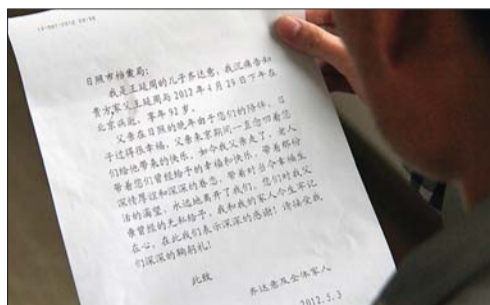 日照市档案局:
我是王延周的儿子乔达意,我沉痛告知
贵方家父王延周与2012年4月29日下午在
北京病逝,享年92岁。
父亲在日照的晚年由于您们的陪伴,日
子过得很幸福,父亲来京期间一直念叨着您
们给他带来的快乐。如今我父亲走了,老人
带着您们曾经给予的幸福和快乐,带着那份
深情厚谊和深深的眷恋,带着对当今幸福生
活的渴望,永远地离开了我们,您们对我父
亲曾经的无私给予,我和我的家人今生牢记
在心,在此我们表示深深的感谢!请接受我
们深深的鞠躬礼!
此致
乔达意及全体家人
2012.5.3